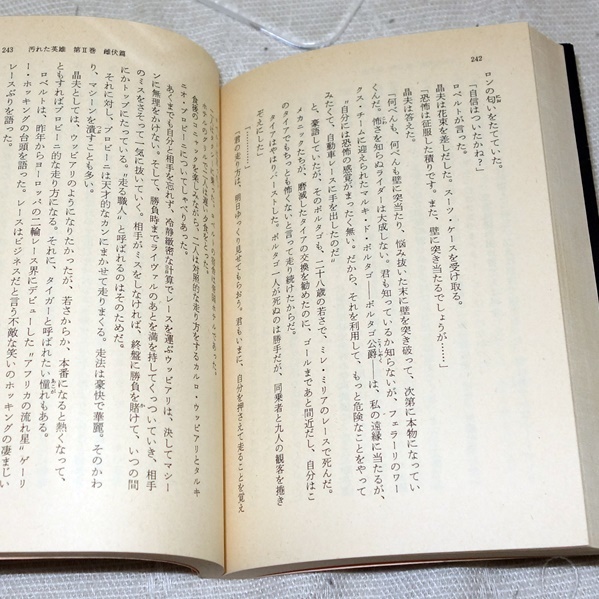 242
ロンの匂いをたてていた。
「自信はついたかね？」
ロベルトが言った。
晶夫は花束を差しだした。スーツ・ケースを受け取る。
「恐怖は征服した積りです。また、壁に突き当たるでしょうが……」
晶夫は答えた。
「何べんも、何べんも壁に突当り、悩み抜いた末に壁を突き破って、次第に本物になってい
くんだ。怖さを知らぬライダーは大成しない。君も知っているか知らないが、フェラーリのワー
クス・チームに迎えられたマルキ・ド・ポルタゴ――ポルタゴ公爵――は、私の遠縁に当たるが、
〝自分には恐怖の感覚がまったく無い〟だから、それを利用して、もっと危険なことをやって
みたくて、自動車レースに手を出したのだ〟
と、豪語していたが、そのポルタゴも、二十八歳の若さで、ミレ・ミリアのレースで死んだ。
メカニックたちが、磨滅したタイアの交換を勧めたのに、ゴールまであと間近だし、自分はこ
のタイアでもちっとも怖くないと言って走り続けたからだ。
タイアはやはりバーストした。ポルタゴ一人が死ぬのは勝手だが、同乗者と九人の観客を捲き
ぞえにした」
「君の走り方は、明日ゆっくり見せてもらおう。君もいまに、自分を押さえて走ることを覚え
243 汚れた英雄 第Ⅱ巻 雌伏篇
食後のコニャックを楽しみながら
は対照的な走り方をするカルロ・ウッビアリとタルキ
ニオ・プロビーニについてしゃべりあった。
あくまでも自分と相手を忘れず、冷静緻密な計算でレースを運ぶウッビアリは、決してマシー
ンに無理をかけない。そして、勝負時までライヴァルのあとを満を持してくっついていき、相手
のミスをさそって一気に抜いていく。相手がミスをしなければ、終盤に勝負を賭けて、いつの間
にかトップにたっている。〝走る職人〟と呼ばれるのはそのためだ。
それに対し、プロビーニは天才的なカンにまかせて走りまくる。走法は豪快で華麗。そのかわ
り、マシーンを潰すことも多い。
晶夫としては、ウッビアリのようになりたかったが、若さからか、本番になると熱くなって、
ともすればプロビーニ的な走り方になる。それに、タイガーと呼ばれたい憧れもある。
ロベルトは、昨年からヨーロッパの二輪レース界にデビューした〝アフリカの流れ星〟ゲーリ
ー・ホッキングの台頭を語った。レースはビジネスだと言う不敵な笑いのホッキングの凄まじい
レースぶりを語った。